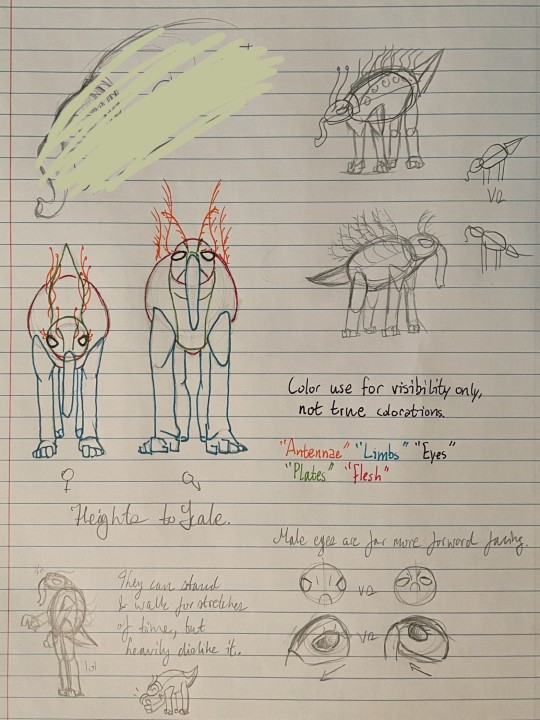 VS
Color use for visibility only,
not true colorations.
"Antennae" "Limbs" "Eyes"
"Plates" "Flesh"
♀ ♂
Heights to Scale.
Male eyes are far more forward facing.
They can stand
& walk for stretches
of time, but
heavily dislike it.
VS
VS